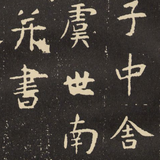 子中舍
虞世南
并書